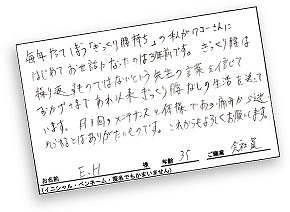 毎年たてしまう「ぎっくり腰持ち」の私がワコーさんに
はじめてお世話になったのは3年前です。ぎっくり腰は
繰り返すものではないという先生の言葉を信じて
あれ以来ぎっくり腰なしの生活を送って
います。月1回のメンテナンスと体操であの痛みから逃
れられるとはありがたいものです。これからもよろしくお願いします。
お名前 E.H 様 年齢 35 ご職業 会社員
(イニシャル・ペンネーム・匿名でもかまいません)